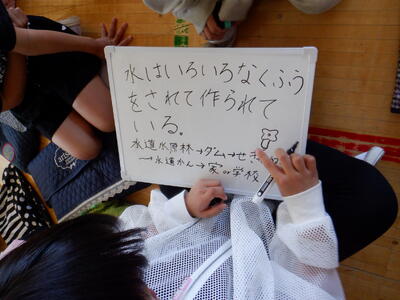 水はいろいろなくふう
をされて作られて
いる。
水道水源林→ダム→せき
→水道かん→家や学校